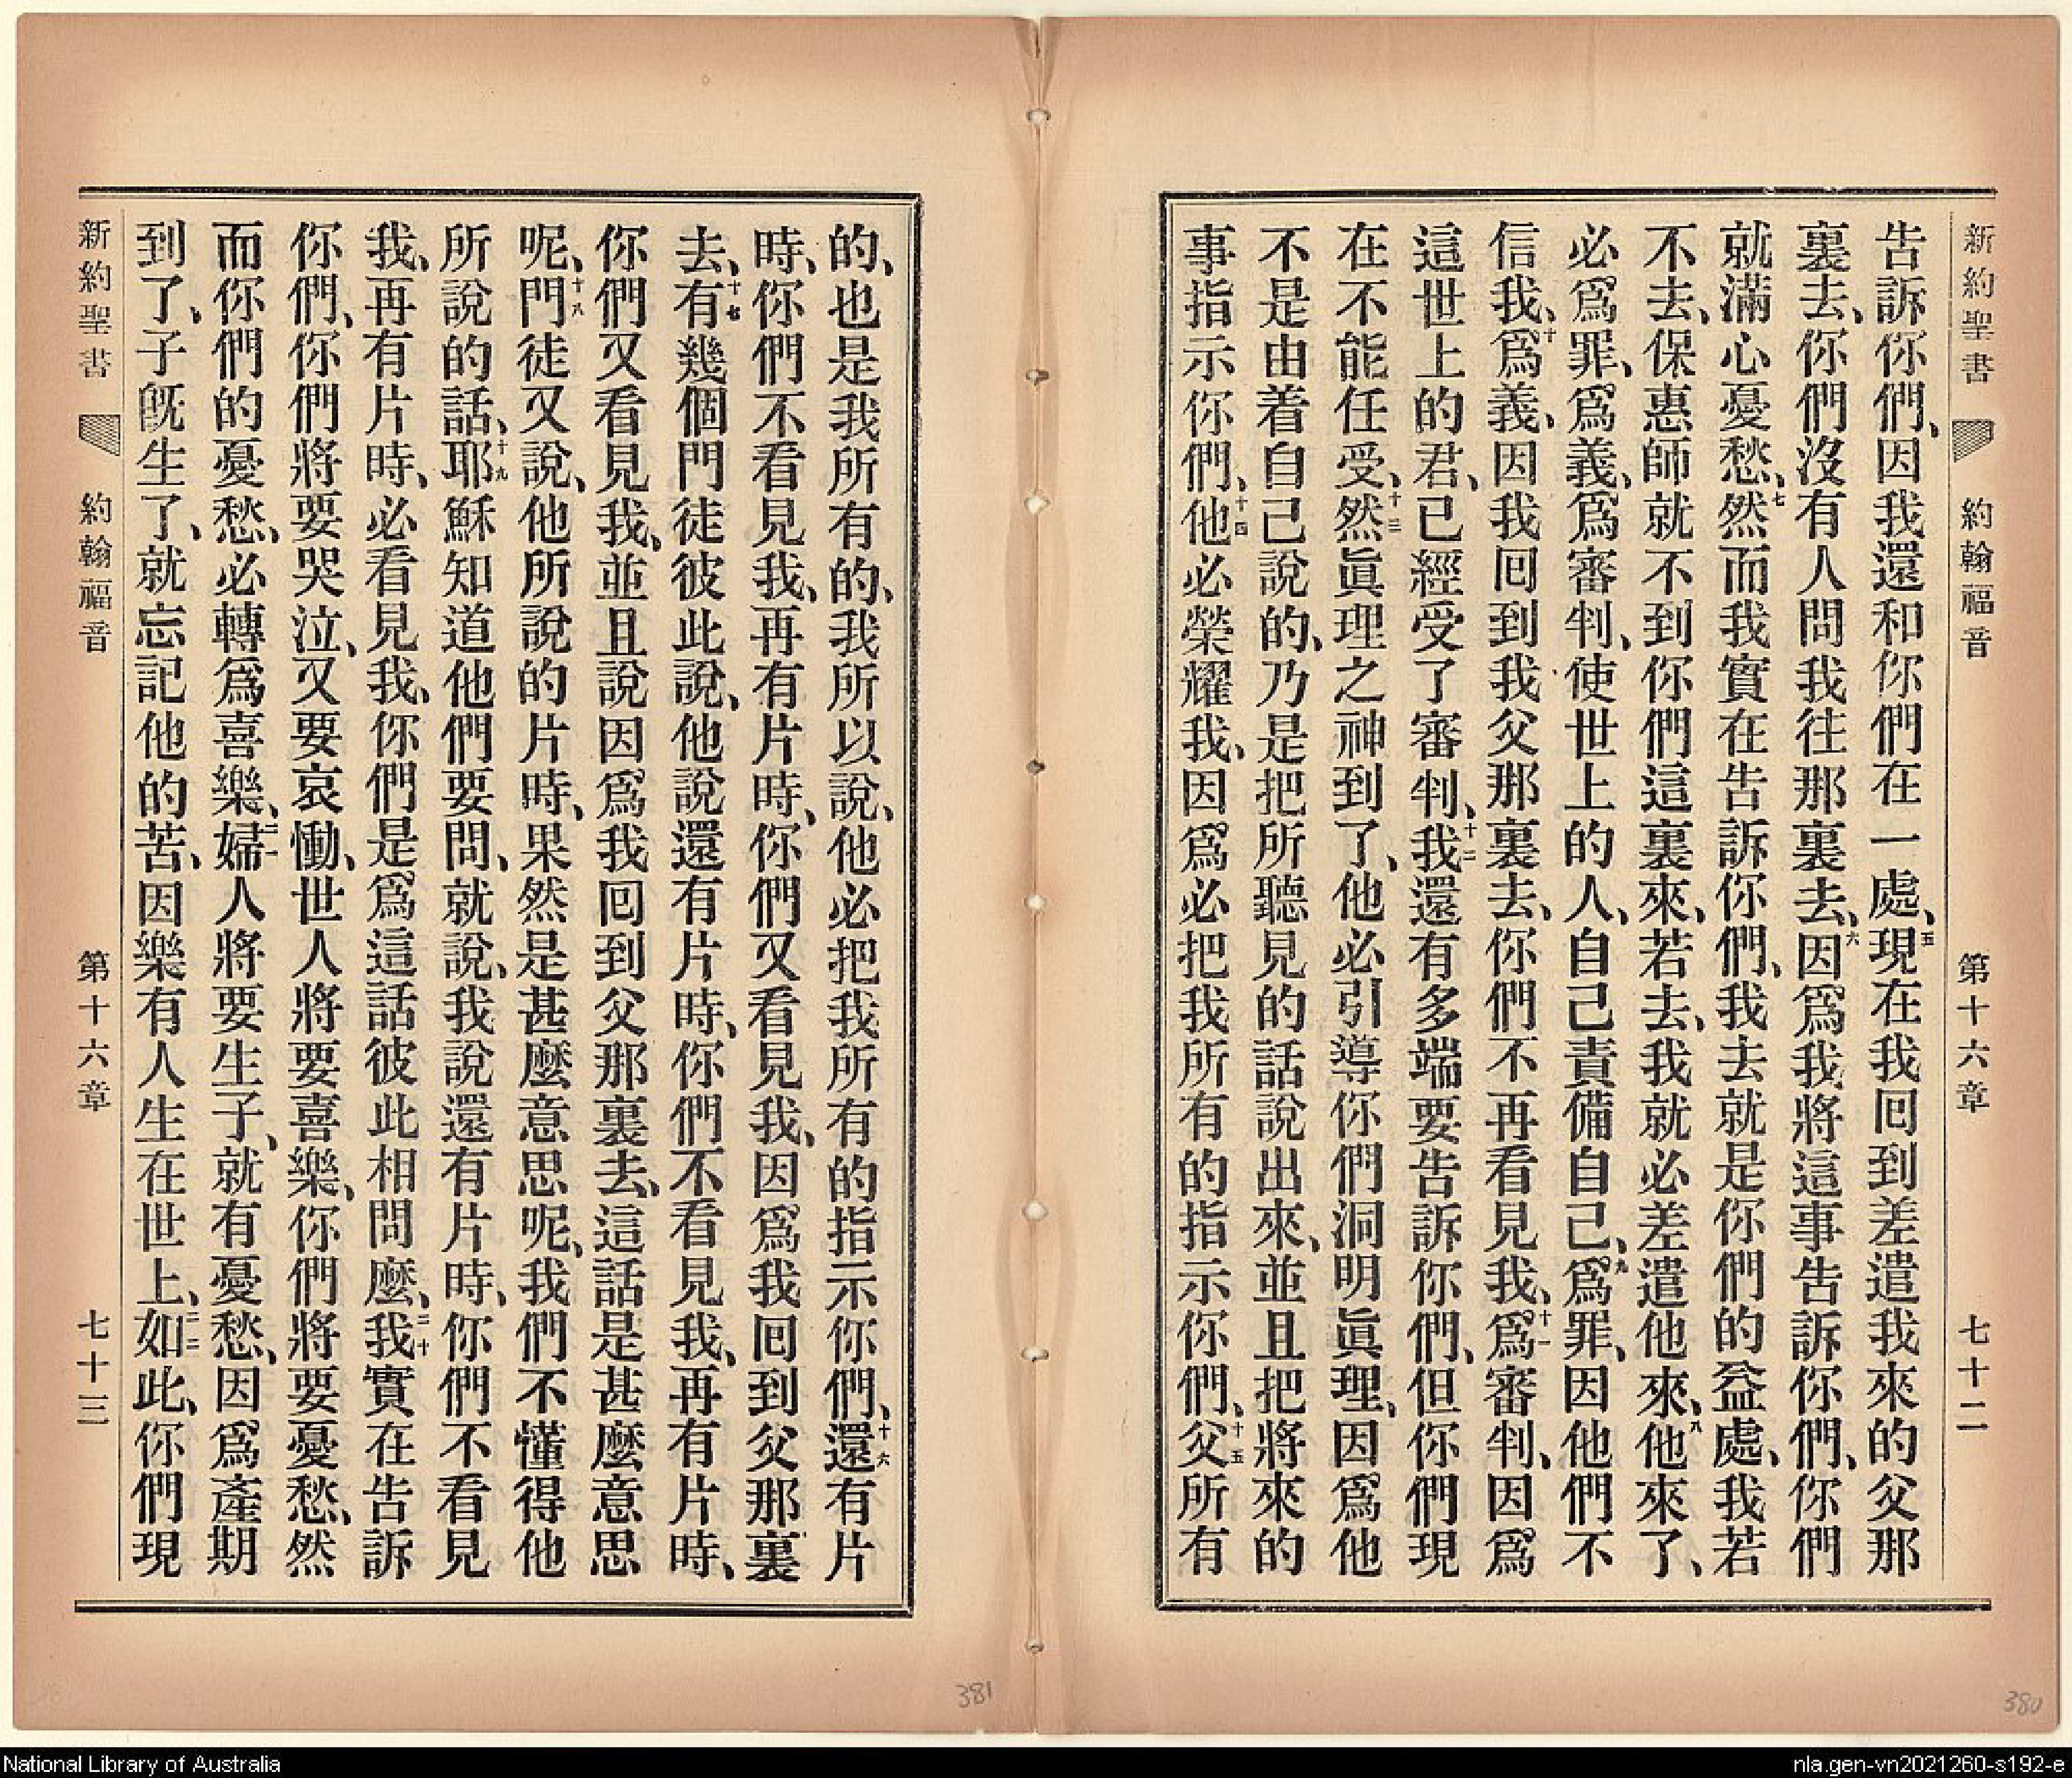 新約聖書 約翰福音 第十六章 七十二
告訴你們、因我還和你們在一處、五現在我囘到差遣我來的父那
裏去、你們沒有人問我往那裏去、六因爲我將這事告訴你們、你們
就滿心憂愁、七然而我實在告訴你們、我去就是你們的益處、我若
不去、保惠師就不到你們這裏來、若去、我就必差遣他來、八他來了、
必爲罪、爲義、爲審判、使世上的人、自己責備自己、九爲罪、因他們不
信我、十爲義、因我囘到我父那裏去、你們不再看見我、十一爲審判、因爲
這世上的君、已經受了審判、十二我還有多端要告訴你們、但你們現
在不能任受、十三然眞理之神到了、他必引導你們洞明眞理、因爲他
不是由着自己說的、乃是把所聽見的話說出來、並且把將來的
事指示你們、十四他必榮耀我、因爲必把我所有的指示你們、十五父所有
的、也是我所有的、我所以說、他必把我所有的指示你們、十六還有片
時、你們不看見我、再有片時、你們又看見我、因爲我囘到父那裏
去、十七有幾個門徒彼此說、他說還有片時、你們不看見我、再有片時、
你們又看見我、並且說因爲我囘到父那裏去、這話是甚麼意思
呢、十八門徒又說、他所說的片時、果然是甚麼意思呢、我們不懂得他
所說的話、十九耶穌知道他們要問、就說、我說還有片時、你們不看見
我、再有片時、必看見我、你們是爲這話彼此相問麼、二十我實在告訴
你們、你們將要哭泣、又要哀慟、世人將要喜樂、你們將要憂愁、然
而你們的憂愁、必轉爲喜樂、二一婦人將要生子、就有憂愁、因爲產期
到了、子旣生了、就忘記他的苦、因樂有人生在世上、二二如此、你們現
新約聖書 約翰福音 第十六章 七十三
381
380
National Library of Australia
nla.gen-vn2021260-s192-e